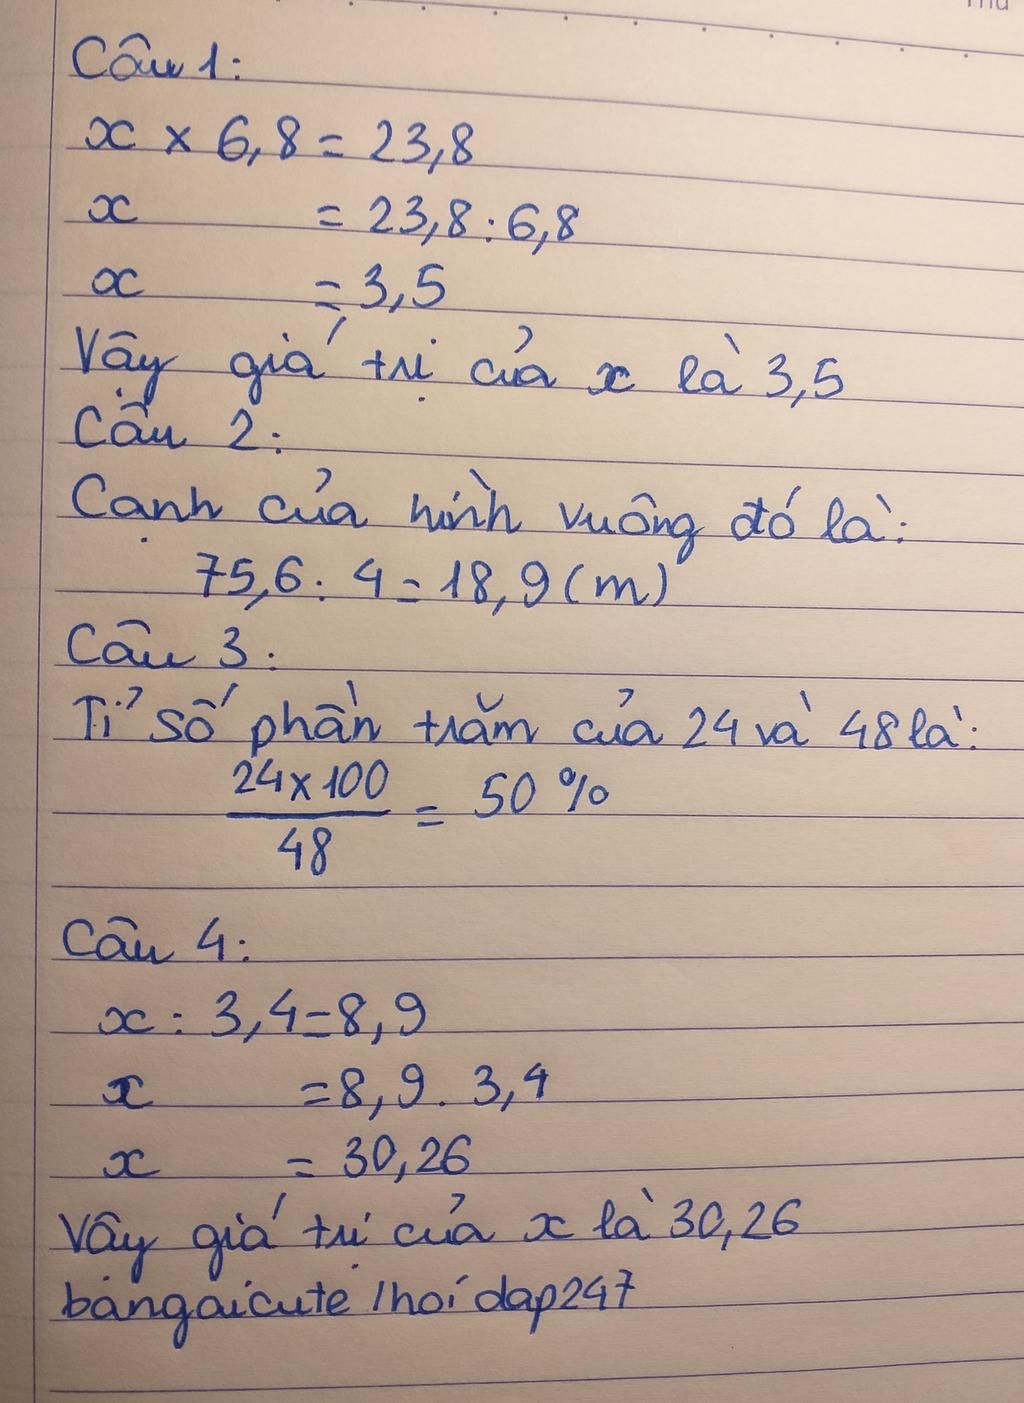 Thứ
Câu 1:
x × 6,8 = 23,8
x = 23,8 : 6,8
x = 3,5
Vậy giá trị của x là 3,5
Câu 2:
Cạnh của hình vuông đó là:
75,6 : 4 = 18,9 (m)
Câu 3:
Tỉ số phần trăm của 24 và 48 là:
24 x 100
= 50 %
48
Câu 4:
x : 3,4 = 8,9
x = 8,9 . 3,4
x = 30,26
Vây giá trị của x là 30,26
bangaicute / hoidap247